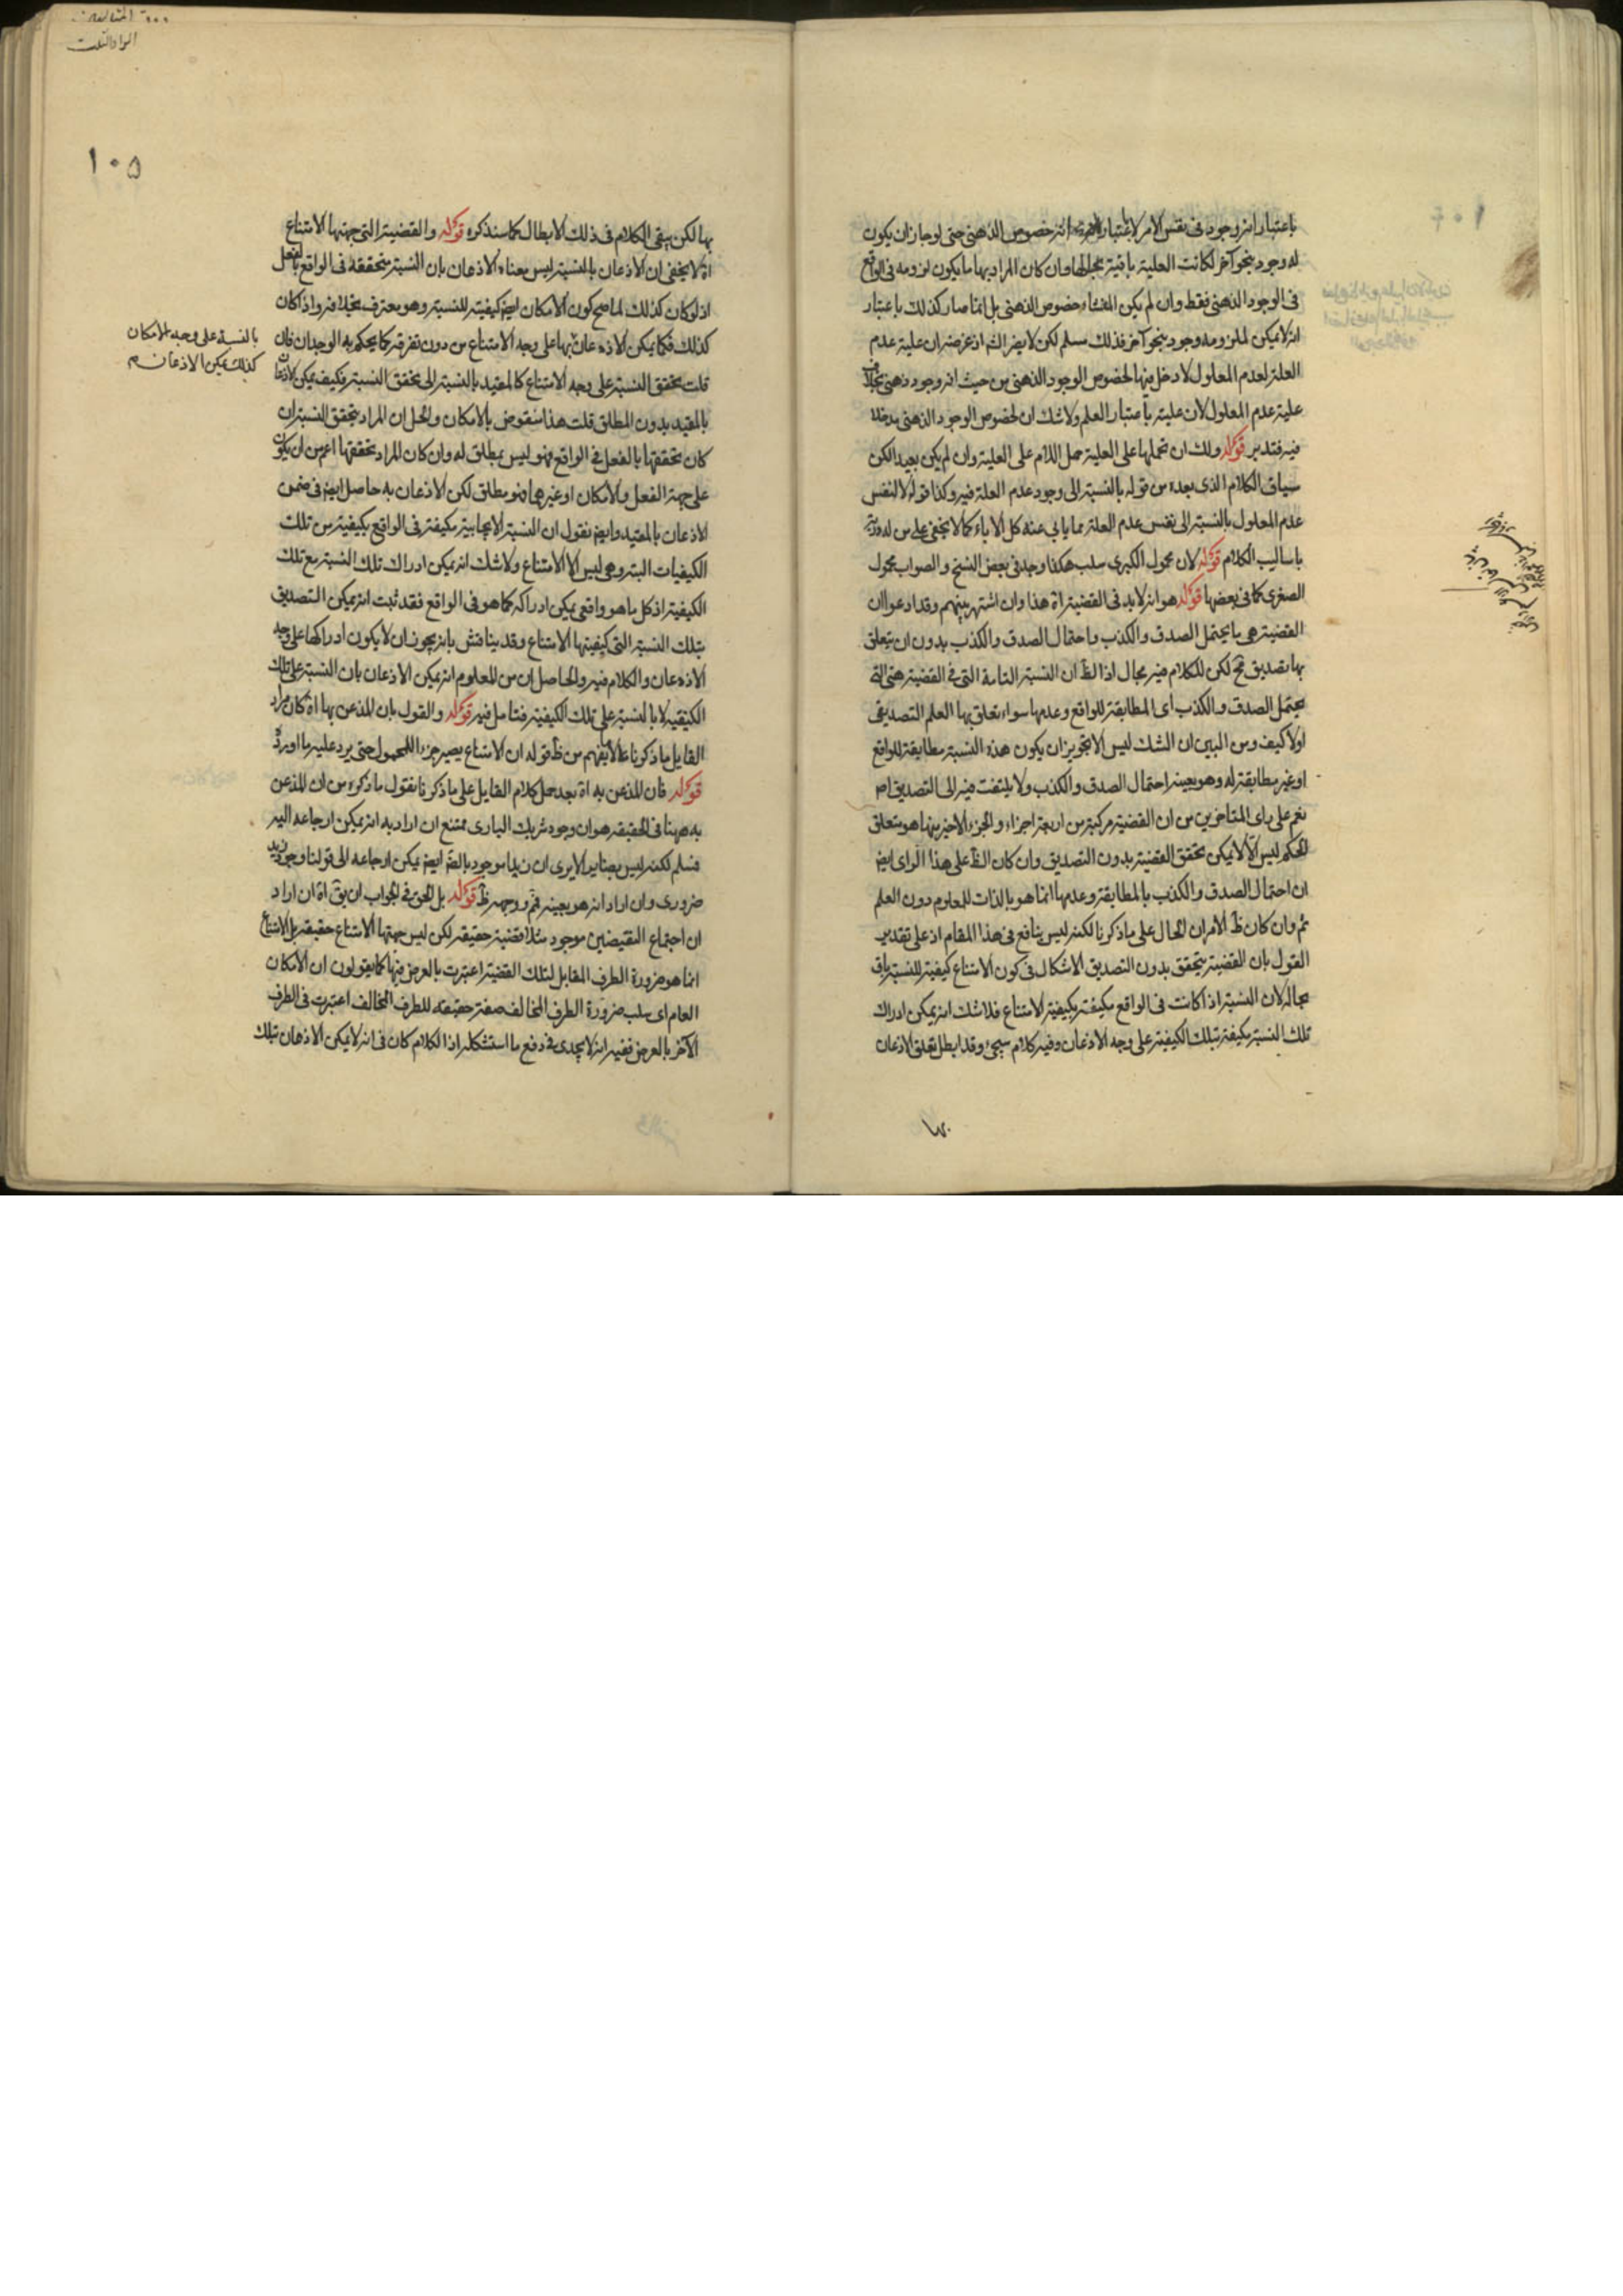 باعتبار انه وجود فى نفس الامر لا باعتبار انه خصوص الذهنى حتى لو جاز ان يكون
له وجود بنحو آخر لكانت العلية باقية بحالها وان كان المراد بها ما يكون لزومه فى الواقع
فى الوجود الذهنى فقط وان لم يكن المنشاء خصوص الذهنى بل انما صار كذلك باعتبار
انه لا يمكن لملزومه وجود بنحو آخر فذلك مسلم لكن لا يضر الش اذ غرضه ان علية عدم
العلة لعدم المعلول لا دخل فيها لخصوص الوجود الذهنى من حيث انه وجود ذهنى بخلاف
علية عدم المعلول لان عليته باعتبار العلم ولا شك ان لخصوص الوجود الذهنى مدخلا
فيه فتدبر قوله ولك ان تحملها على العلية حمل اللام على العلية وان لم يكن بعيدا لكن
سياق الكلام الذى بعده من قوله بالنسبة الى وجود عدم العلة فيه وكذا قوله لا لنفس
عدم المعلول بالنسبة الى نفس عدم العلة مما يابى عنه كل الاباء كما لا يخفى على من له دربة
باساليب الكلام قوله لان محمول الكبرى سلب هكذا وجد فى بعض النسخ والصواب محمول
الصغرى كما فى بعضها قوله هو انه لا بد فى القضية اه هذا وان اشتهر بينهم وقد ادعوا ان
القضية هى ما يحتمل الصدق والكذب واحتمال الصدق والكذب بدون ان يتعلق
بها تصديق مح لكن للكلام فيه مجال اذ الظ ان النسبة التامة التى فى القضية هى التى
يحتمل الصدق والكذب اى المطابقة للواقع وعدمها سواء تعلق بها العلم التصديقى
اولا كيف ومن البين ان الشك ليس الا تجويز ان يكون هذه النسبة مطابقة للواقع
او غير مطابقة له وهو بعينه احتمال الصدق والكذب ولا يلتفت فيه الى التصديق اصلا
نعم على راى المتاخرين من ان القضية مركبة من اربعة اجزاء والجزء الاخير منها هو متعلق
الحكم ليس الا لا يمكن تحقق القضية بدون التصديق وان كان الظ على هذا الراى ايض
ان احتمال الصدق والكذب بالمطابقة وعدمها انما هو بالذات للمعلوم دون العلم
ثم وان كان ظ الامر ان الحال على ما ذكرنا لكنه ليس بنافع فى هذا المقام اذ على تقدير
القول بان القضية يتحقق بدون التصديق الاشكال فى كون الامتناع كيفية للنسبة باق
بحاله لان النسبة اذا كانت فى الواقع مكيفة بكيفية الامتناع فلا شك انه يمكن ادراك
تلك النسبة مكيفة بتلك الكيفية على وجه الاذعان وفيه كلام سيجئ وقد ابطل تعلق الاذعان
بها
١٠٥
بها لكن يبقى الكلام فى ذلك الابطال كما سنذكره قوله والقضية التى جهتها الامتناع
اه لا يخفى ان الاذعان بالنسبة ليس معناه الاذعان بان النسبة متحققة فى الواقع بالفعل
اذ لو كان كذلك لما صح كون الامكان ايض كيفية للنسبة وهو معترف بخلافه واذا كان
كذلك فكما يمكن الاذعان بها على وجه الامتناع من دون تفرقة كما يحكم به الوجدان فان
بالنسبة على وجه الامكان
كذلك يمكن الاذعان م
قلت تحقق النسبة على وجه الامتناع كالمقيد بالنسبة الى تحقق النسبة فكيف يمكن الاذعان
بالمقيد بدون المطلق قلت هذا منقوض بالامكان والحل ان المراد بتحقق النسبة ان
كان تحققها بالفعل فى الواقع فهو ليس بمطلق له وان كان المراد تحققها اعم من ان يكون
على جهة الفعل والامكان او غيرهما فهو مطلق لكن الاذعان به حاصل ايض فى ضمن
الاذعان بالمقيد وايض نقول ان النسبة الايجابية مكيفة فى الواقع بكيفية من تلك
الكيفيات البتة وهى ليس الا الامتناع ولا شك انه يمكن ادراك تلك النسبة مع تلك
الكيفية اذ كل ما هو واقعى يمكن ادراكه كما هو فى الواقع فقد ثبت انه يمكن التصديق
بتلك النسبة التى كيفيتها الامتناع وقد يناقش بانه يجوز ان لا يكون ادراكها على وجه
الاذعان والكلام فيه والحاصل ان من المعلوم انه يمكن الاذعان بان النسبة على تلك
الكيفية لا بالنسبة على تلك الكيفية فتامل فيه قوله والقول بان المذعن بها اه كان مراد
القايل ما ذكرنا لا ما يفهم من ظ قوله ان الامتناع يصير جزء للمحمول حتى يرد عليه ما اورده
قوله فان المذعن به اه بعد حمل كلام القايل على ما ذكرنا نقول ما ذكره من ان المذعن
به ههنا فى الحقيقة هو ان وجود شريك البارى ممتنع ان اراد به انه يمكن ارجاعه اليه
فسلم لكنه ليس بضاير الا يرى ان زيدا موجود بالضرورة ايض يمكن ارجاعه الى قولنا وجود زيد
ضرورى وان اراد انه هو بعينه فمم ووجهه ظ قوله بل الحق فى الجواب ان يق اه ان اراد
ان اجتماع النقيضين موجود مثلا قضية حقيقة لكن ليس جهتها الامتناع حقيقة بل الامتناع
انما هو ضرورة الطرف المقابل لتلك القضية اعتبرت بالعرض فيها كما يقولون ان الامكان
العام اى سلب ضرورة الطرف المخالف صفة حقيقة للطرف المخالف اعتبرت فى الطرف
الآخر بالعرض ففيه انه لا يجدى فى دفع ما استشكله اذ الكلام كان فى انه لا يمكن الاذعان بتلك